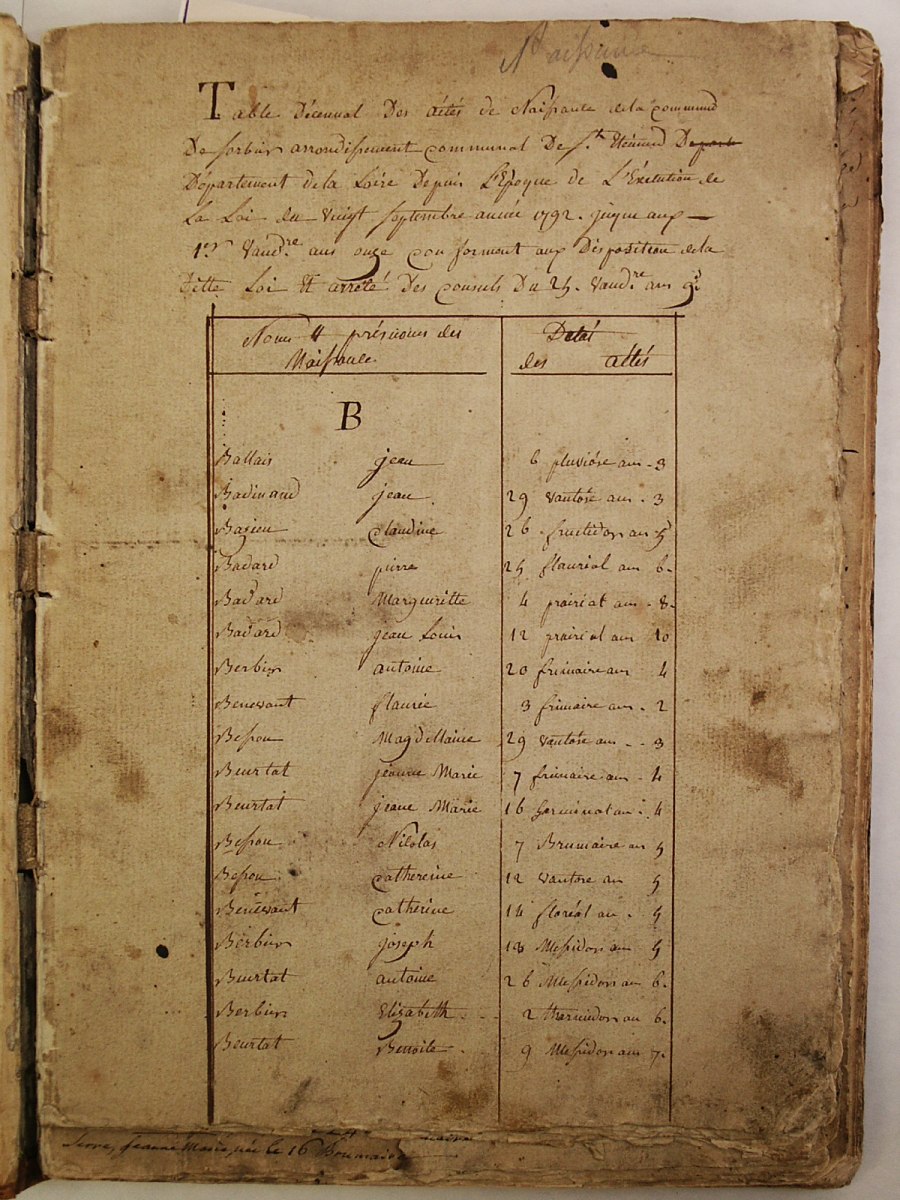 Naissance
Table Décennal Des actés de Naissance de la commune
De sorbier arrondissement communal De St. Etienne Depart
Département de la Loire Depuis L'Epoque de L'Exécution de
La Loi du vingt septembre année 1792. jusque aux
1er Vandre ans onze conforment aux Disposition de la
ditte Loi Et arrété Des consuls Du 25. Vandre. ans 9.
Noms et prénoms des
Naissance
Datés
des actés
B
Ballais jean 6 pluviôse ans - 3
Badinand jean. 29 vantose ans - 3
Bazieu claudine 26 fructidor ans 5
Badard pierre 25 flauréal ans 6.
Badard Margueritte 4 prairéal ans - 8.
Badard jean Louis 12 prairéal ans 10
Berbier antoine 20 frimaire ans 4
Benevant flaurie 3 frimaire ans - 2
Besson Magdellaine 29 vantose ans - 3
Beurtat jeanne Marie 7 frimaire ans - 4
Beurtat jeane Marie 16 Germinal an 4
Besson Nicolas 7 Brumaire an 5
Besson Catherine 12 vantose an 5
Benevant Catherine 14 floréal an. 5
Berbier joseph 18 Messidor an 5
Beurtat antoine 26 Messidor an 6.
Berbier Elizabeth 2 thermidor an 6.
Beurtat Benoite. 9 Messidor ans 7.
Serre, Jeanne Marie, née le 16 Brumaire